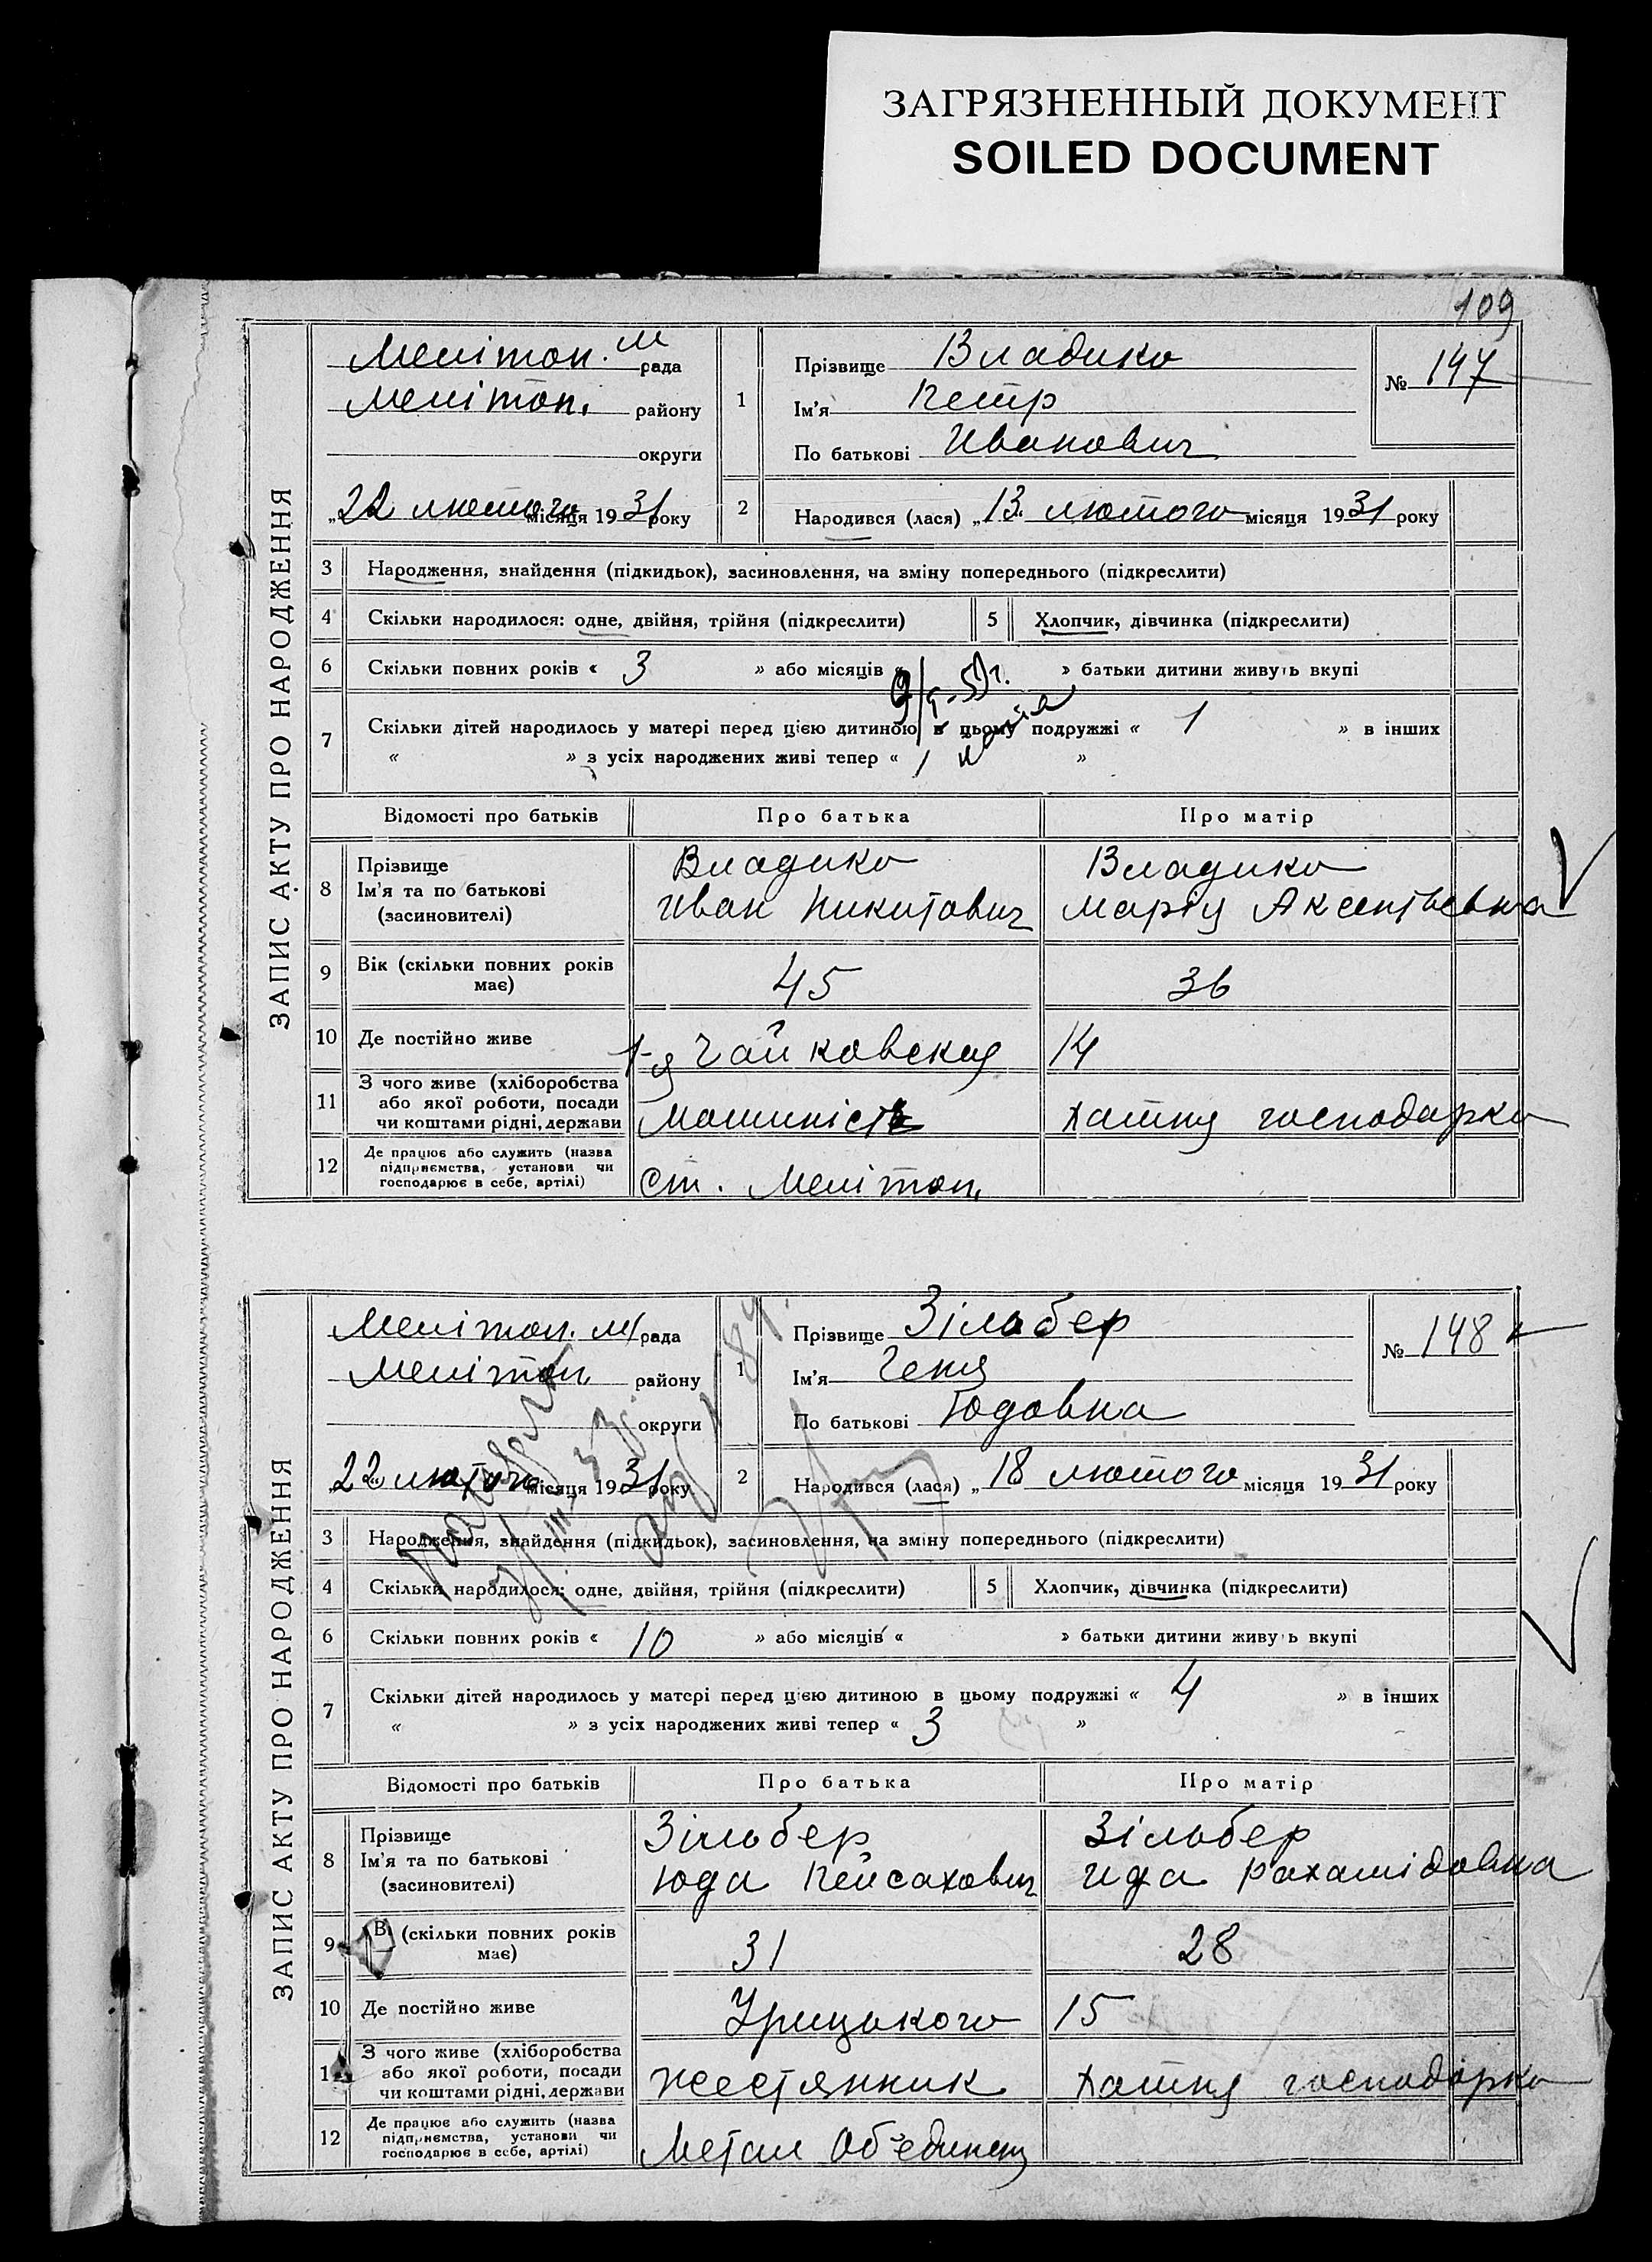 ЗАГРЯЗНЕННЫЙ ДОКУМЕНТ
SOILED DOCUMENT
109
ЗАПИС АКТУ ПРО НАРОДЖЕННЯ
Меліт оп. м рада
Меліт оп. району
округи
„22 лютого місяця 1931 року
1
Прізвище Владико
Ім'я Петр
По батькові Иванович
№ 147
2 Народився (лася) „13 лютого місяця 1931 року
3 Народження, знайдення (підкидьок), засиновлення, на зміну попереднього (підкреслити)
4 Скільки народилося: одне, двійня, трійня (підкреслити) 5 Хлопчик, дівчинка (підкреслити)
6 Скільки повних років « 3 » або місяців « » батьки дитини живуть вкупі
7 Скільки дітей народилось у матері перед цією дитиною в цьому подружжі « 1 » в інших
« » з усіх народжених живі тепер « 1 »
Відомості про батьків Про батька Про матір
8 Прізвище
Ім'я та по батькові
(засиновителі)
Владико
Иван Никитович
Владико
Марія Аксентьевна
9 Вік (скільки повних років має) 45 36
10 Де постійно живе 1-я Чайковская 14
11 З чого живе (хліборобства
або якої роботи, посади
чи коштами рідні, держави
Машиніст
хатня господарка
12 Де працює або служить (назва
підприємства, установи чи
господарює в себе, артілі)
ст. Меліт оп.
ЗАПИС АКТУ ПРО НАРОДЖЕННЯ
Меліт оп. м рада
Меліт оп. району
округи
22 лютого місяця 1931 року
1
Прізвище Зільбер
Ім'я Геня
По батькові Юдовна
№ 148
2 Народився (лася) „18 лютого місяця 1931 року
3 Народження, знайдення (підкидьок), засиновлення, на зміну попереднього (підкреслити)
4 Скільки народилося: одне, двійня, трійня (підкреслити) 5 Хлопчик, дівчинка (підкреслити)
6 Скільки повних років « 10 » або місяців « » батьки дитини живуть вкупі
7 Скільки дітей народилось у матері перед цією дитиною в цьому подружжі « 4 » в інших
« » з усіх народжених живі тепер « 3 »
Відомості про батьків Про батька Про матір
8 Прізвище
Ім'я та по батькові
(засиновителі)
Зільбер
Юда Пейсахович
Зільбер
Ида Рахамідовна
9 В (скільки повних років має) 31 28
10 Де постійно живе Урицького 15
11 З чого живе (хліборобства
або якої роботи, посади
чи коштами рідні, держави
жестянник
хатня господарка
12 Де працює або служить (назва
підприємства, установи чи
господарює в себе, артілі)
Метал